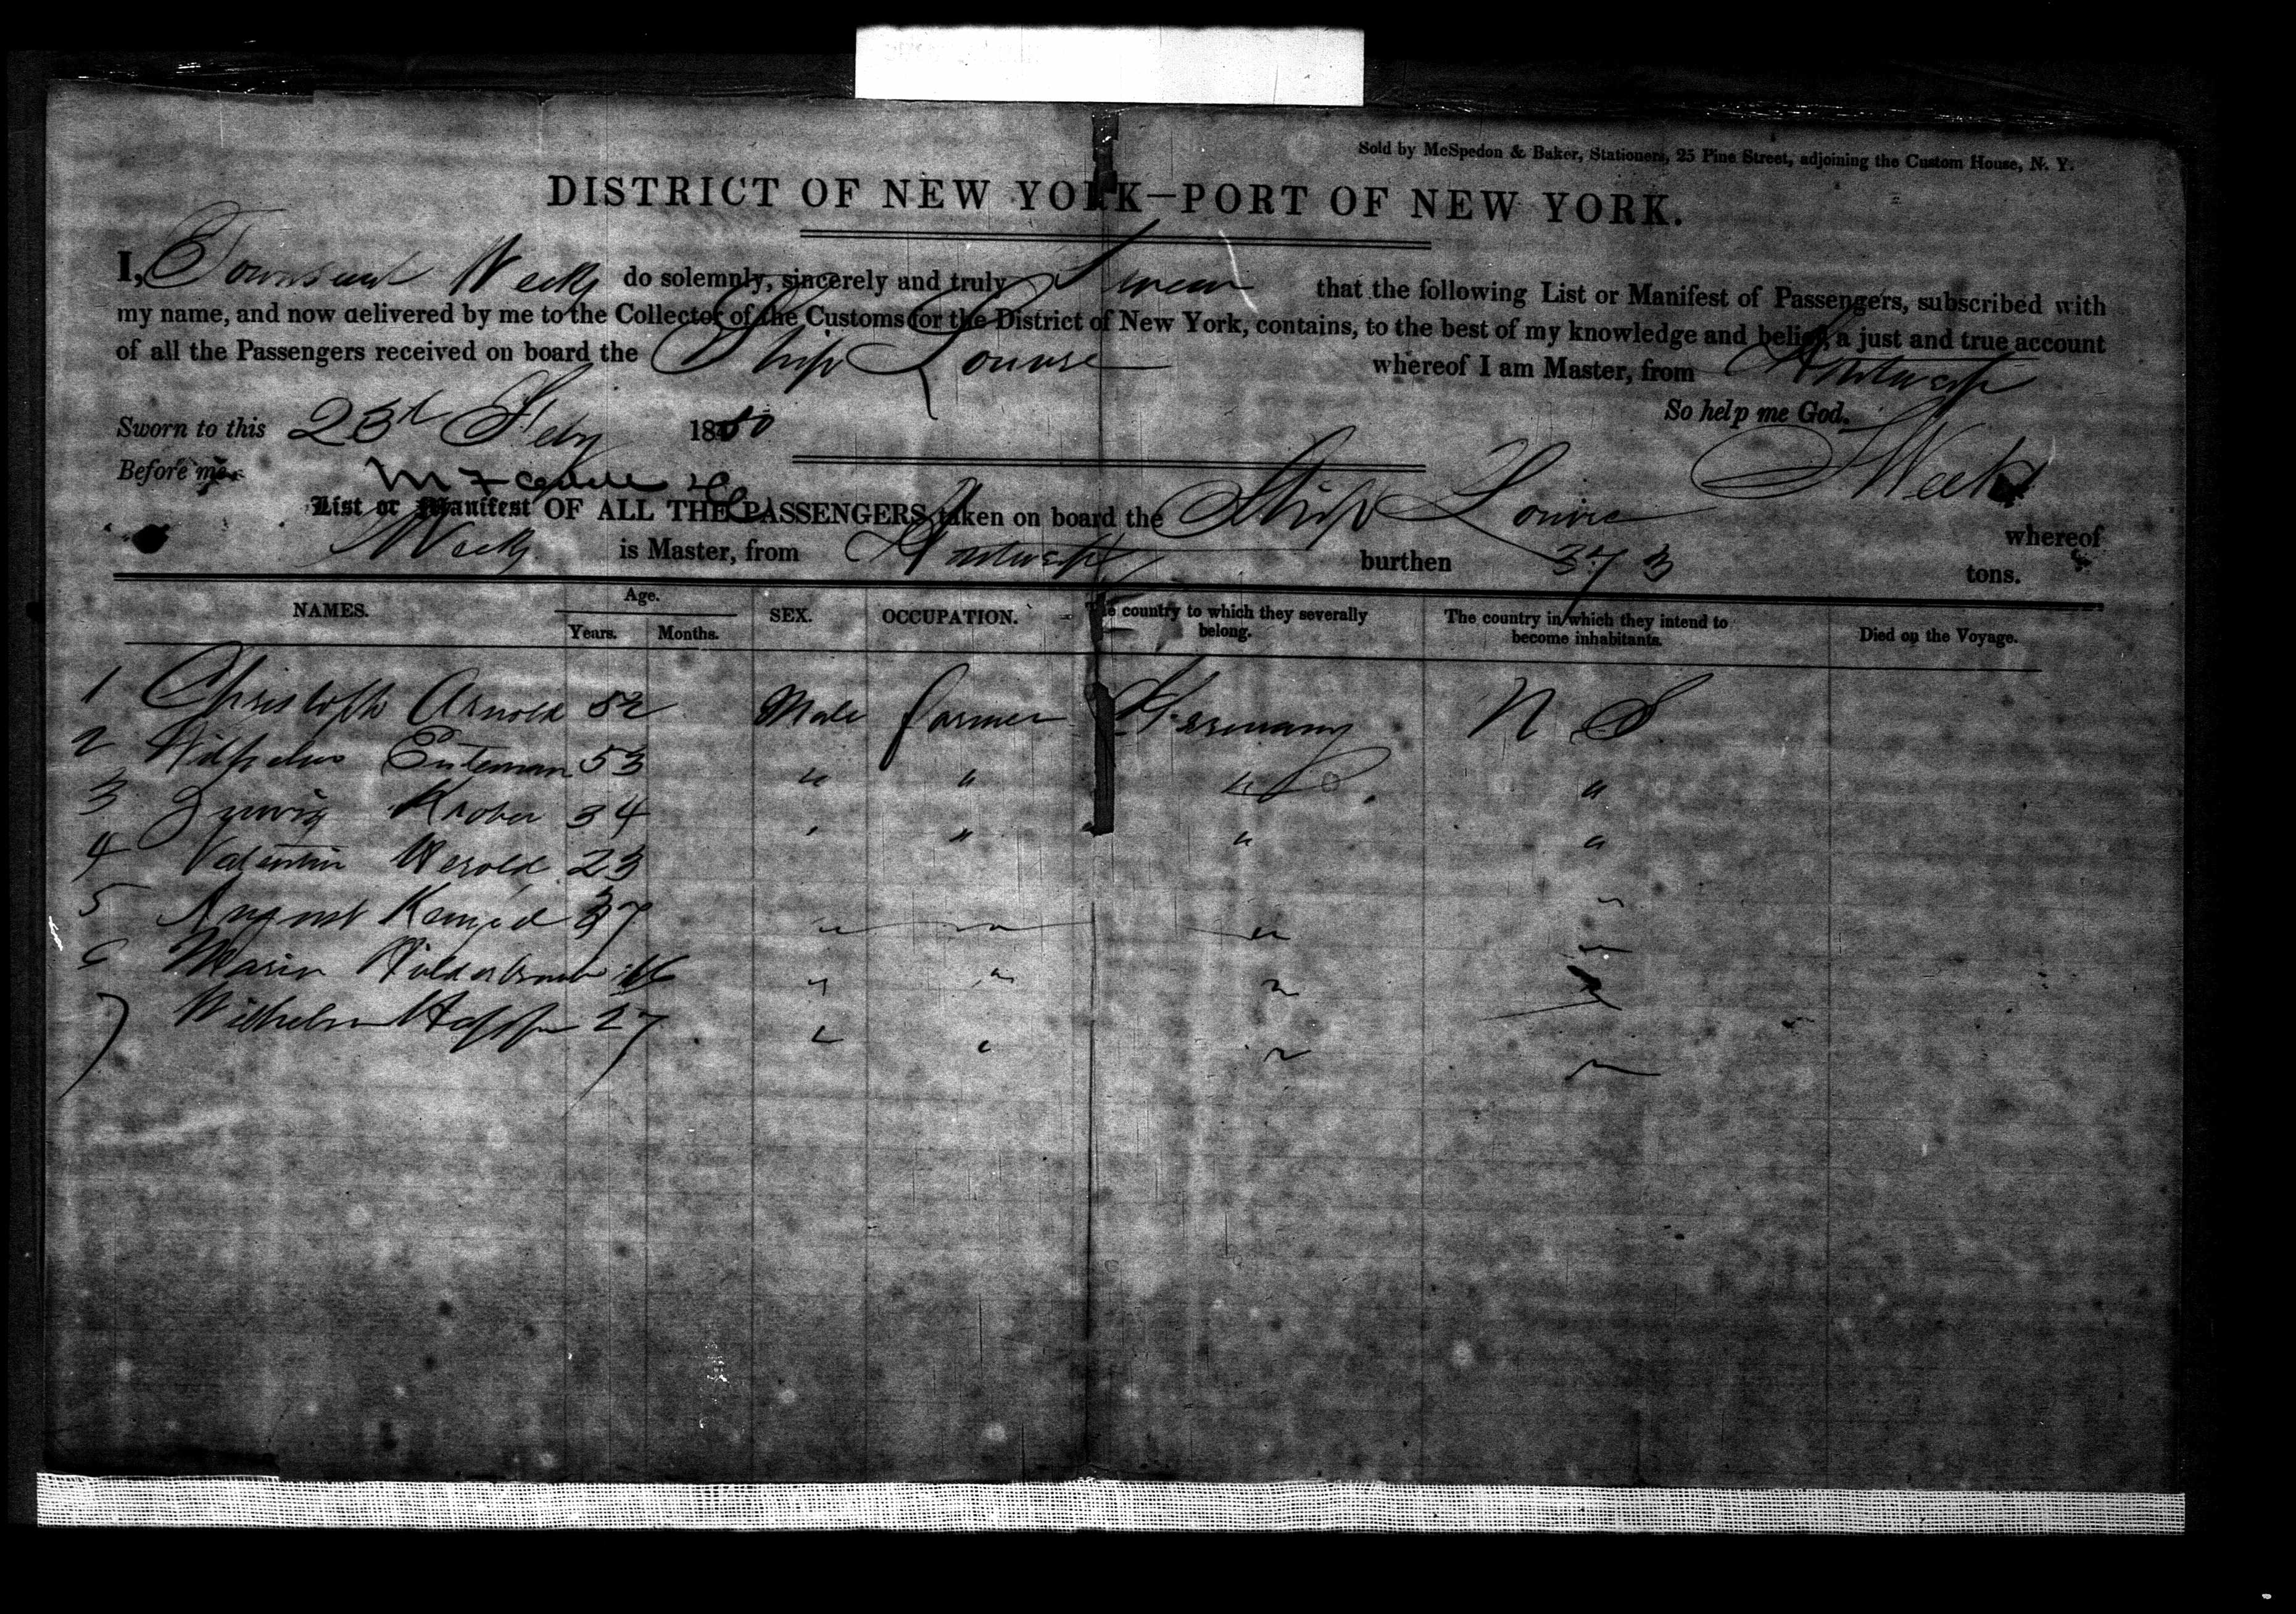 Sold by McSpedon & Baker, Stationers, 25 Pine Street, adjoining the Custom House, N. Y.
DISTRICT OF NEW YORK—PORT OF NEW YORK.
I, Townsend Weeks do solemnly, sincerely and truly Swear that the following List or Manifest of Passengers, subscribed with
my name, and now delivered by me to the Collector of the Customs for the District of New York, contains, to the best of my knowledge and belief, a just and true account
of all the Passengers received on board the Ship Louvre whereof I am Master, from Antwerp
So help me God.
Sworn to this 23d Feby 1850
Before me T Weeks
List or Manifest OF ALL THE PASSENGERS taken on board the Ship Louvre whereof
Weeks is Master, from Antwerp burthen 373 tons.
NAMES. Age. Years. Months. SEX. OCCUPATION. The country to which they severally belong. The country in which they intend to become inhabitants. Died on the Voyage.
1 Christoph Arnold 52 Male farmer Germany N S
2 Wilhelm 53 " " " "
3 34 " " " "
4 Valentin Herold 23 "
5 August 37 " " " "
6 16 " " "
7 Wilhelm 27 " " " "